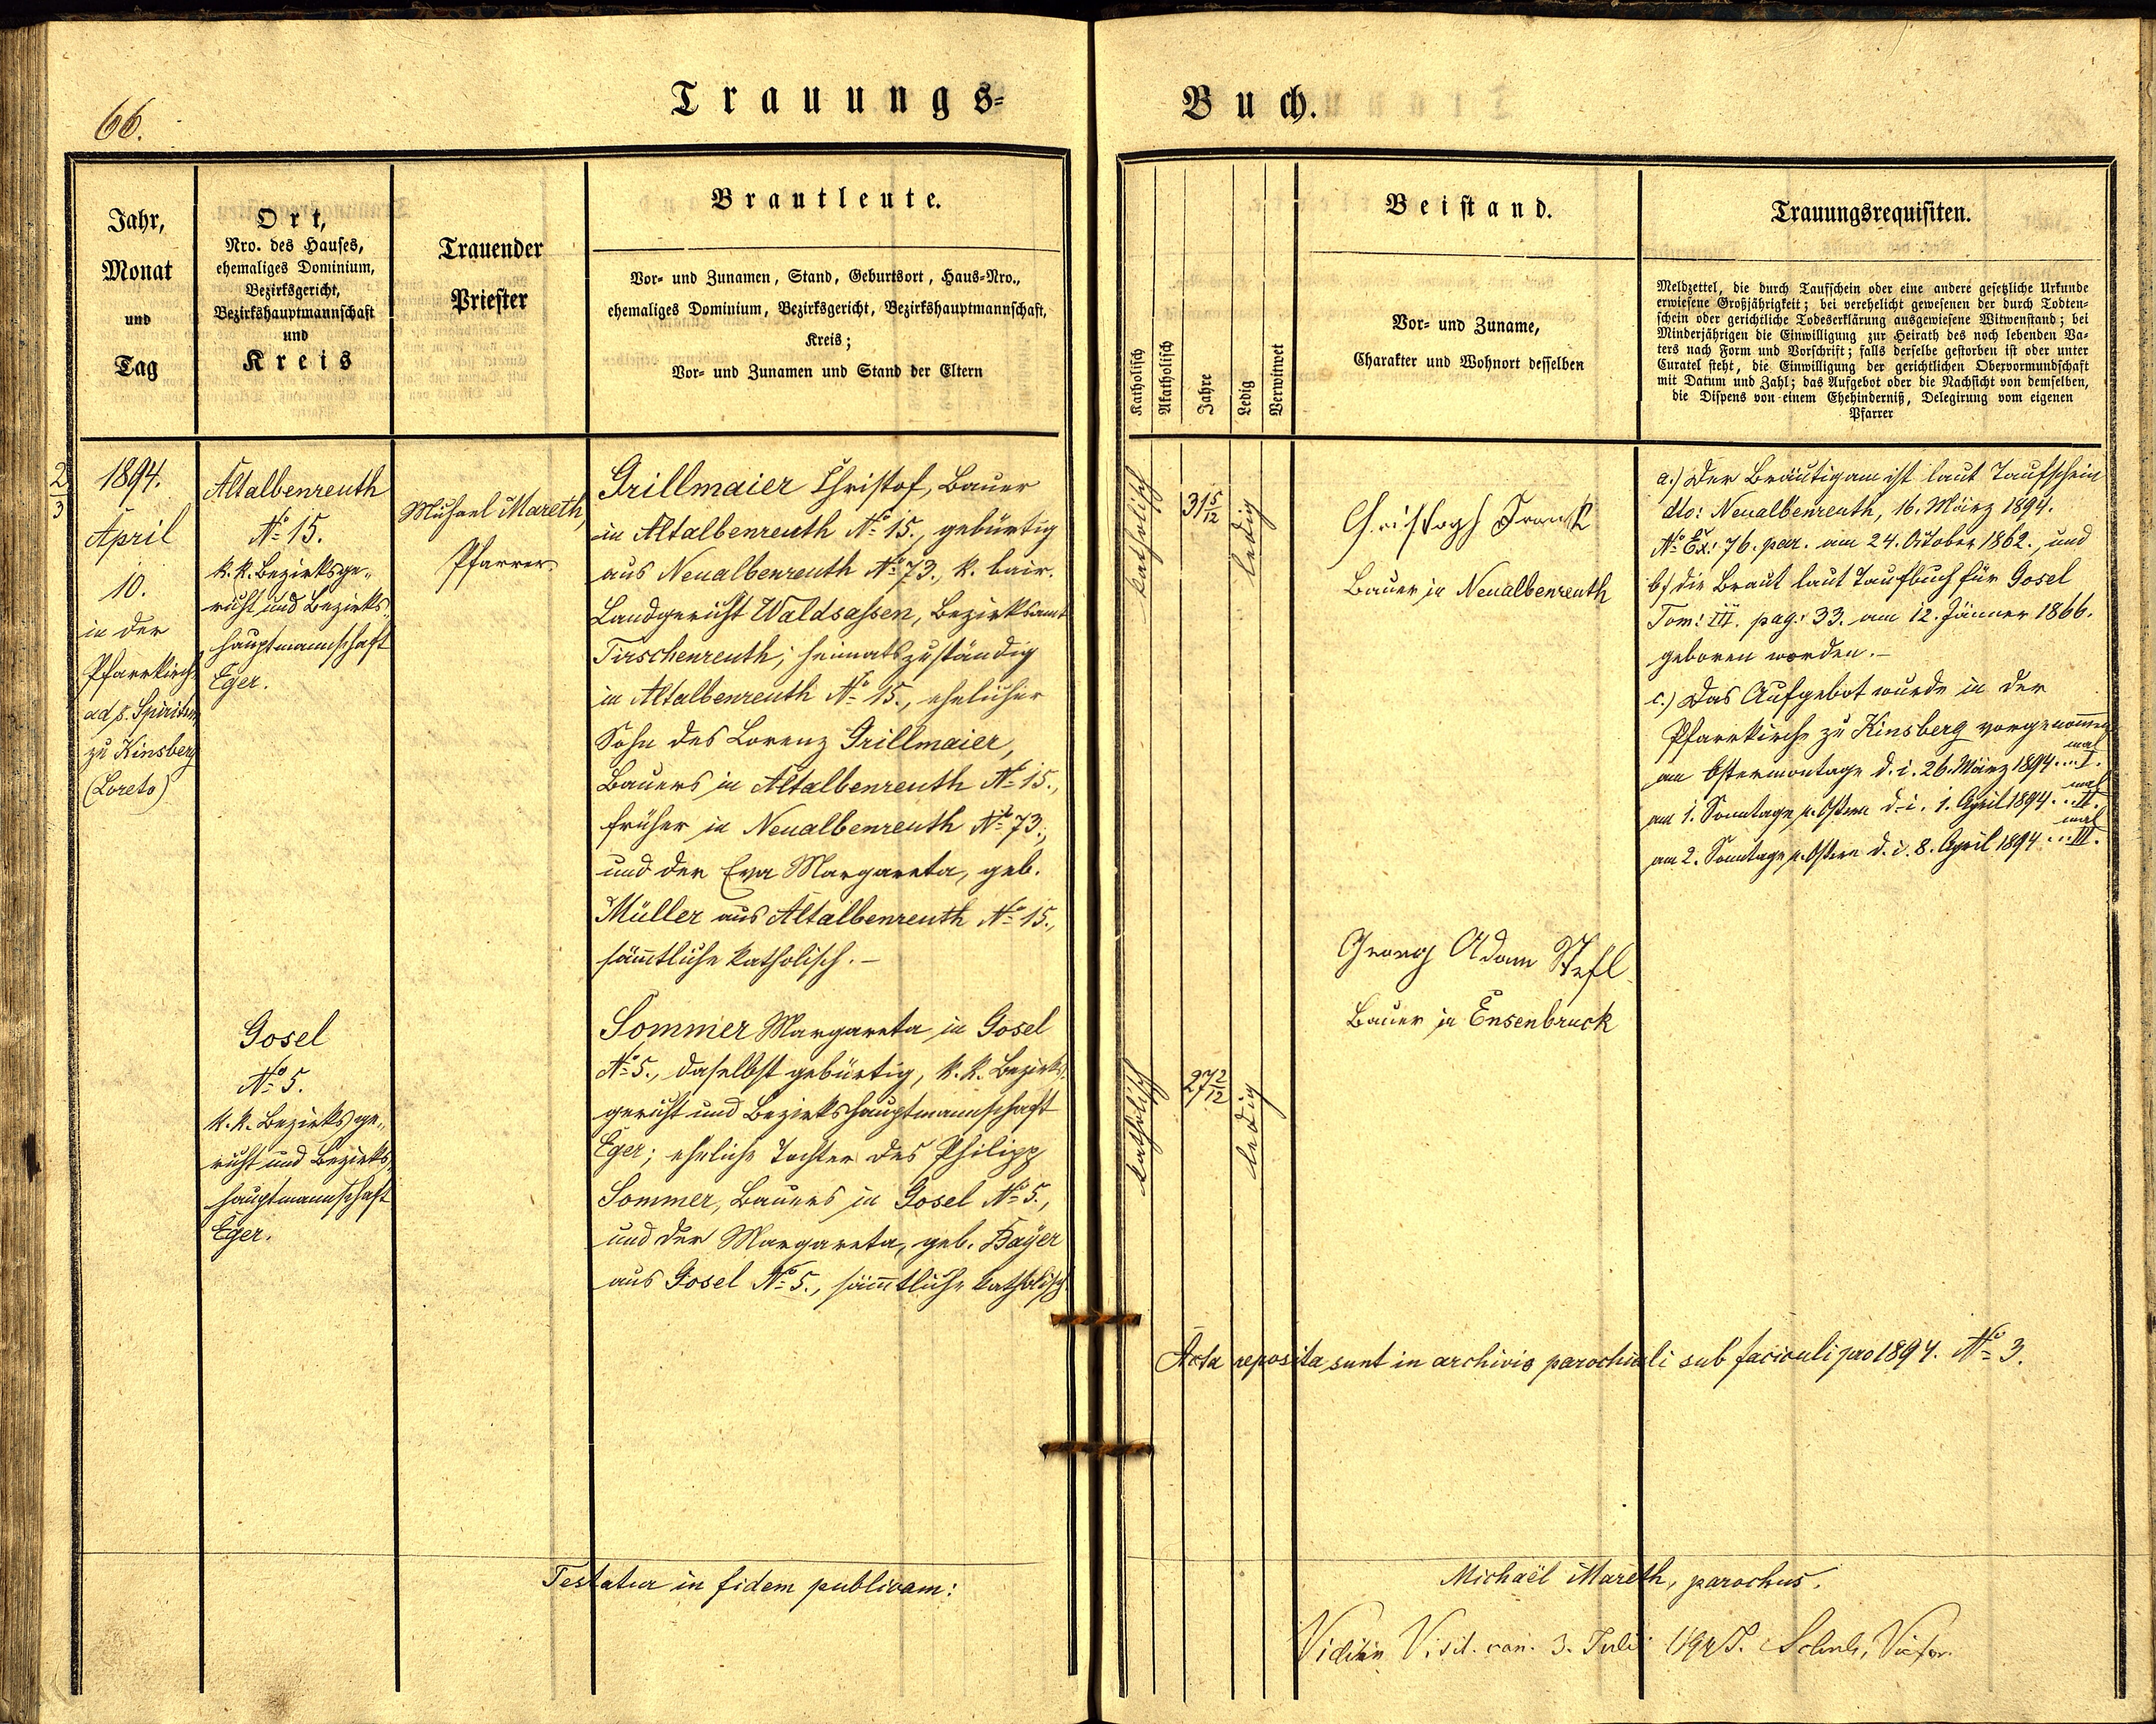 66.
Trauungs-
Buch.
Jahr,
Monat
und
Tag
Ort,
Nro. des Hauses,
ehemaliges Dominium,
Bezirksgericht,
Bezirkshauptmannschaft
und
Kreis
Trauender
Priester
Brautleute.
Vor- und Zunamen, Stand, Geburtsort, Haus-Nro.,
ehemaliges Dominium, Bezirksgericht, Bezirkshauptmannschaft,
Kreis;
Vor- und Zunamen und Stand der Eltern
Katholisch
Akatholisch
Jahre
Ledig
Verwitwet
Beistand.
Vor- und Zuname,
Charakter und Wohnort desselben
Trauungsrequisiten.
Meldzettel, die durch Taufschein oder eine andere gesetzliche Urkunde
erwiesene Großjährigkeit; bei verehelicht gewesenen der durch Todten-
schein oder gerichtliche Todeserklärung ausgewiesene Witwenstand; bei
Minderjährigen die Einwilligung zur Heirath des noch lebenden Va-
ters nach Form und Vorschrift; falls derselbe gestorben ist oder unter
Curatel steht, die Einwilligung der gerichtlichen Obervormundschaft
mit Datum und Zahl; das Aufgebot oder die Nachsicht von demselben,
die Dispens von einem Ehehinderniß, Delegirung vom eigenen
Pfarrer
2/3
1894.
April
10.
in der
Pfarrkirche
ad s. Spiritum
zu Kinsberg
(Loreto)
Altalbenreuth
No 15.
k.k. Bezirksge„
richt und Bezirks„
hauptmannschaft
Eger.
Michael Mareth,
Pfarrer.
Grillmaier Christof, Bauer
in Altalbenreuth No 15., gebürtig
aus Neualbenreuth No 73., k. bair.
Landgericht Waldsassen, Bezirksamt
Tirschenreuth; heimatszuständig
in Altalbenreuth No 15., ehelicher
Sohn des Lorenz Grillmaier,
Bauers in Altalbenreuth No 15.,
früher in Neualbenreuth No 73.,
und der Eva Margareta, geb.
Müller aus Altalbenreuth No 15.,
sämtliche katholisch.–
katholisch
31 5/12
ledig
Christoph Frank
Bauer in Neualbenreuth
a.) Der Bräutigam ist laut Taufschein
dto: Neualbenreuth, 16. März 1894.
No Ex: 76. par. am 24. October 1862., und
b.) die Braut laut Taufbuch für Gosel
Tom: III. pag: 33. am 12. Jänner 1866.
geboren worden.–
c.) Das Aufgebot wurde in der
Pfarrkirche zu Kinsberg vorgenommen
am Ostermontage d. i. 26. März 1894...I. mal
am 1. Sonntage n. Ostern d. i. 1. April 1894...II. mal
am 2. Sonntage n. Ostern d. i. 8. April 1894...III. mal
Gosel
No 5.
k.k. Bezirksge„
richt und Bezirks„
hauptmannschaft
Eger.
Sommer Margareta in Gosel
No 5., daselbst gebürtig, k.k. Bezirks„
gericht und Bezirkshauptmannschaft
Eger; eheliche Tochter des Philipp
Sommer, Bauers in Gosel No 5.,
und der Margareta, geb. Bayer
aus Gosel No 5., sämtliche katholisch.
katholisch
27 2/12
ledig
Georg Adam
Bauer in Ensenbruck
Acta reposita sunt in archivio parochiali sub faciculi pro 1894. No 3.
Testatur in fidem publicam:
Michaël Mareth, parochus.
Vidi in Visit. can. 3. Juli